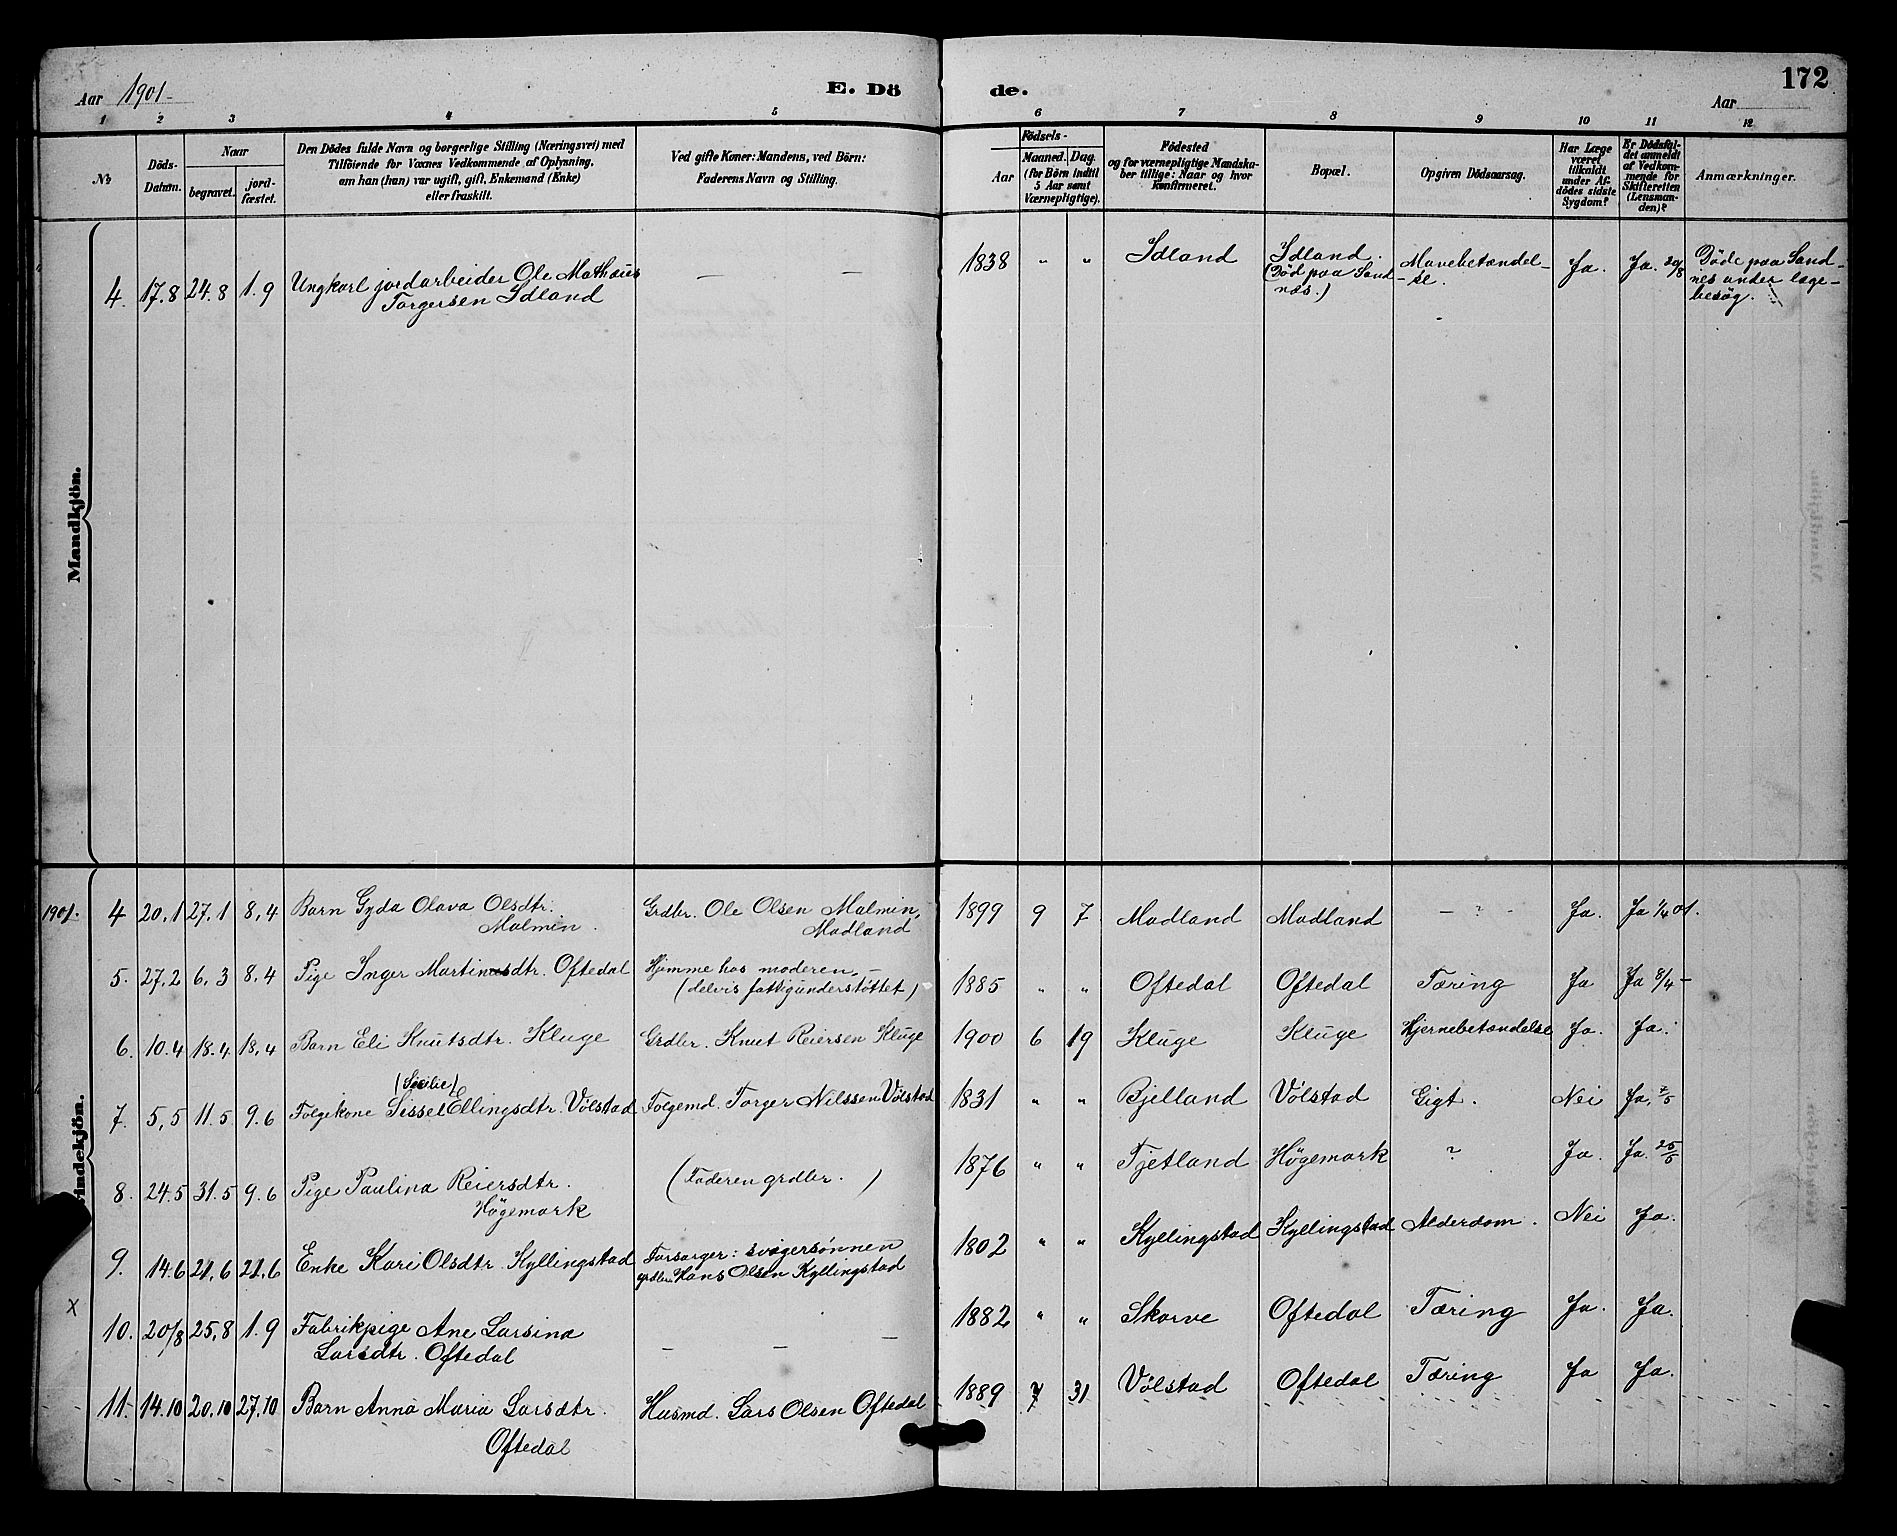 Aar 1901- E. Dö de. Aar 172
1 2 3 4 5 6 7 8 9 10 11 12
№
Döds-
Datum.
Naar
begravet.
jord-
fæstet.
Den Dödes fulde Navn og borgerlige Stilling (Næringsvei) med
Tilföiende for Voxnes Vedkommende af Oplysning,
om han (hun) var ugift, gift, Enkemand (Enke)
eller fraskilt.
Ved gifte Koner: Mandens, ved Börn:
Faderens Navn og Stilling.
Födsels-
Aar
Maaned. Dag.
(for Börn indtil
5 Aar samt
Værnepligtige).
Födested
og for værnepligtige Mandska-
ber tillige: Naar og hvor
Konfirmeret.
Bopæl.
Opgiven Dödsaarsag.
Har Læge
været
tilkaldt
under Af-
dödes sidste
Sygdom?
Er Dödsfal-
det anmeldt
af Vedkom-
mende for
Skifteretten
(Lensman-
den)?
Anmærkninger.
Mandkjön.
4. 17.8 24.8 1.9 Ungkarl jordarbeider Ole Mathæus
Torgersen Idland
— —
1838 " " Idland Idland.
(Död paa Sand
næs.)
Mavebetændel-
-se.
Ja. Ja. 20/8
Döde paa Sand-
nes under læge-
besøg.
1901.
indekjön.
4 20.1 27.1 8.4 Barn Gyda Olava Olsdtr.
Malmin.
Grdbr. Ole Olsen Malmin,
Madland
1899 9 7 Madland Madland - ? - Ja. Ja 1/4 01.
5. 27.2 6.3 8.4 Pige Inger Martinusdtr. Oftedal
Hjemme hos moderen, -
(delvis fattigunderstöttet)
1885 " " Oftedal Oftedal Tæring Ja Ja 8/4 -
6. 10.4 18.4 18.4 Barn Eli Knutsdtr. Kluge Grdbr. Knut Reiersen Kluge 1900 6 19 Kluge Kluge Hjernebetændelse Ja. Ja.
(Sicilie)
7. 5.5 11.5 9.6 Folgekone Sissel Ellingsdtr. Völstad Folgemd. Torger Nilssen Völstad 1831 " " Bjelland Völstad Gigt. Nei Ja. 7/5
8. 24.5 31.5 9.6 Pige Paulina Reiersdtr.
Högemark
(Faderen grdbr. )
1876 " " Tjetland Högemark ? Ja. Ja. 25/5
9. 14.6 21.6 21.6 Enke Kari Olsdtr. Kyllingstad
Forsørger: svogersønnen
grdbr. Hans Olsen Kyllingstad
1802 " " Kyllingstad Kyllingstad Alderdom. Nei Ja.
X
10. 20/8 25.8 1.9 Fabrikpige Ane Larsina
Larsdtr. Oftedal
— — —
1882 " " Skorve Oftedal Tæring Ja. Ja.
11. 14.10 20.10 27.10 Barn Anna Maria Larsdtr.
Oftedal
Husmd. Lars Olsen Oftedal
1889 7 31 Völstad Oftedal Tæring Ja Ja.